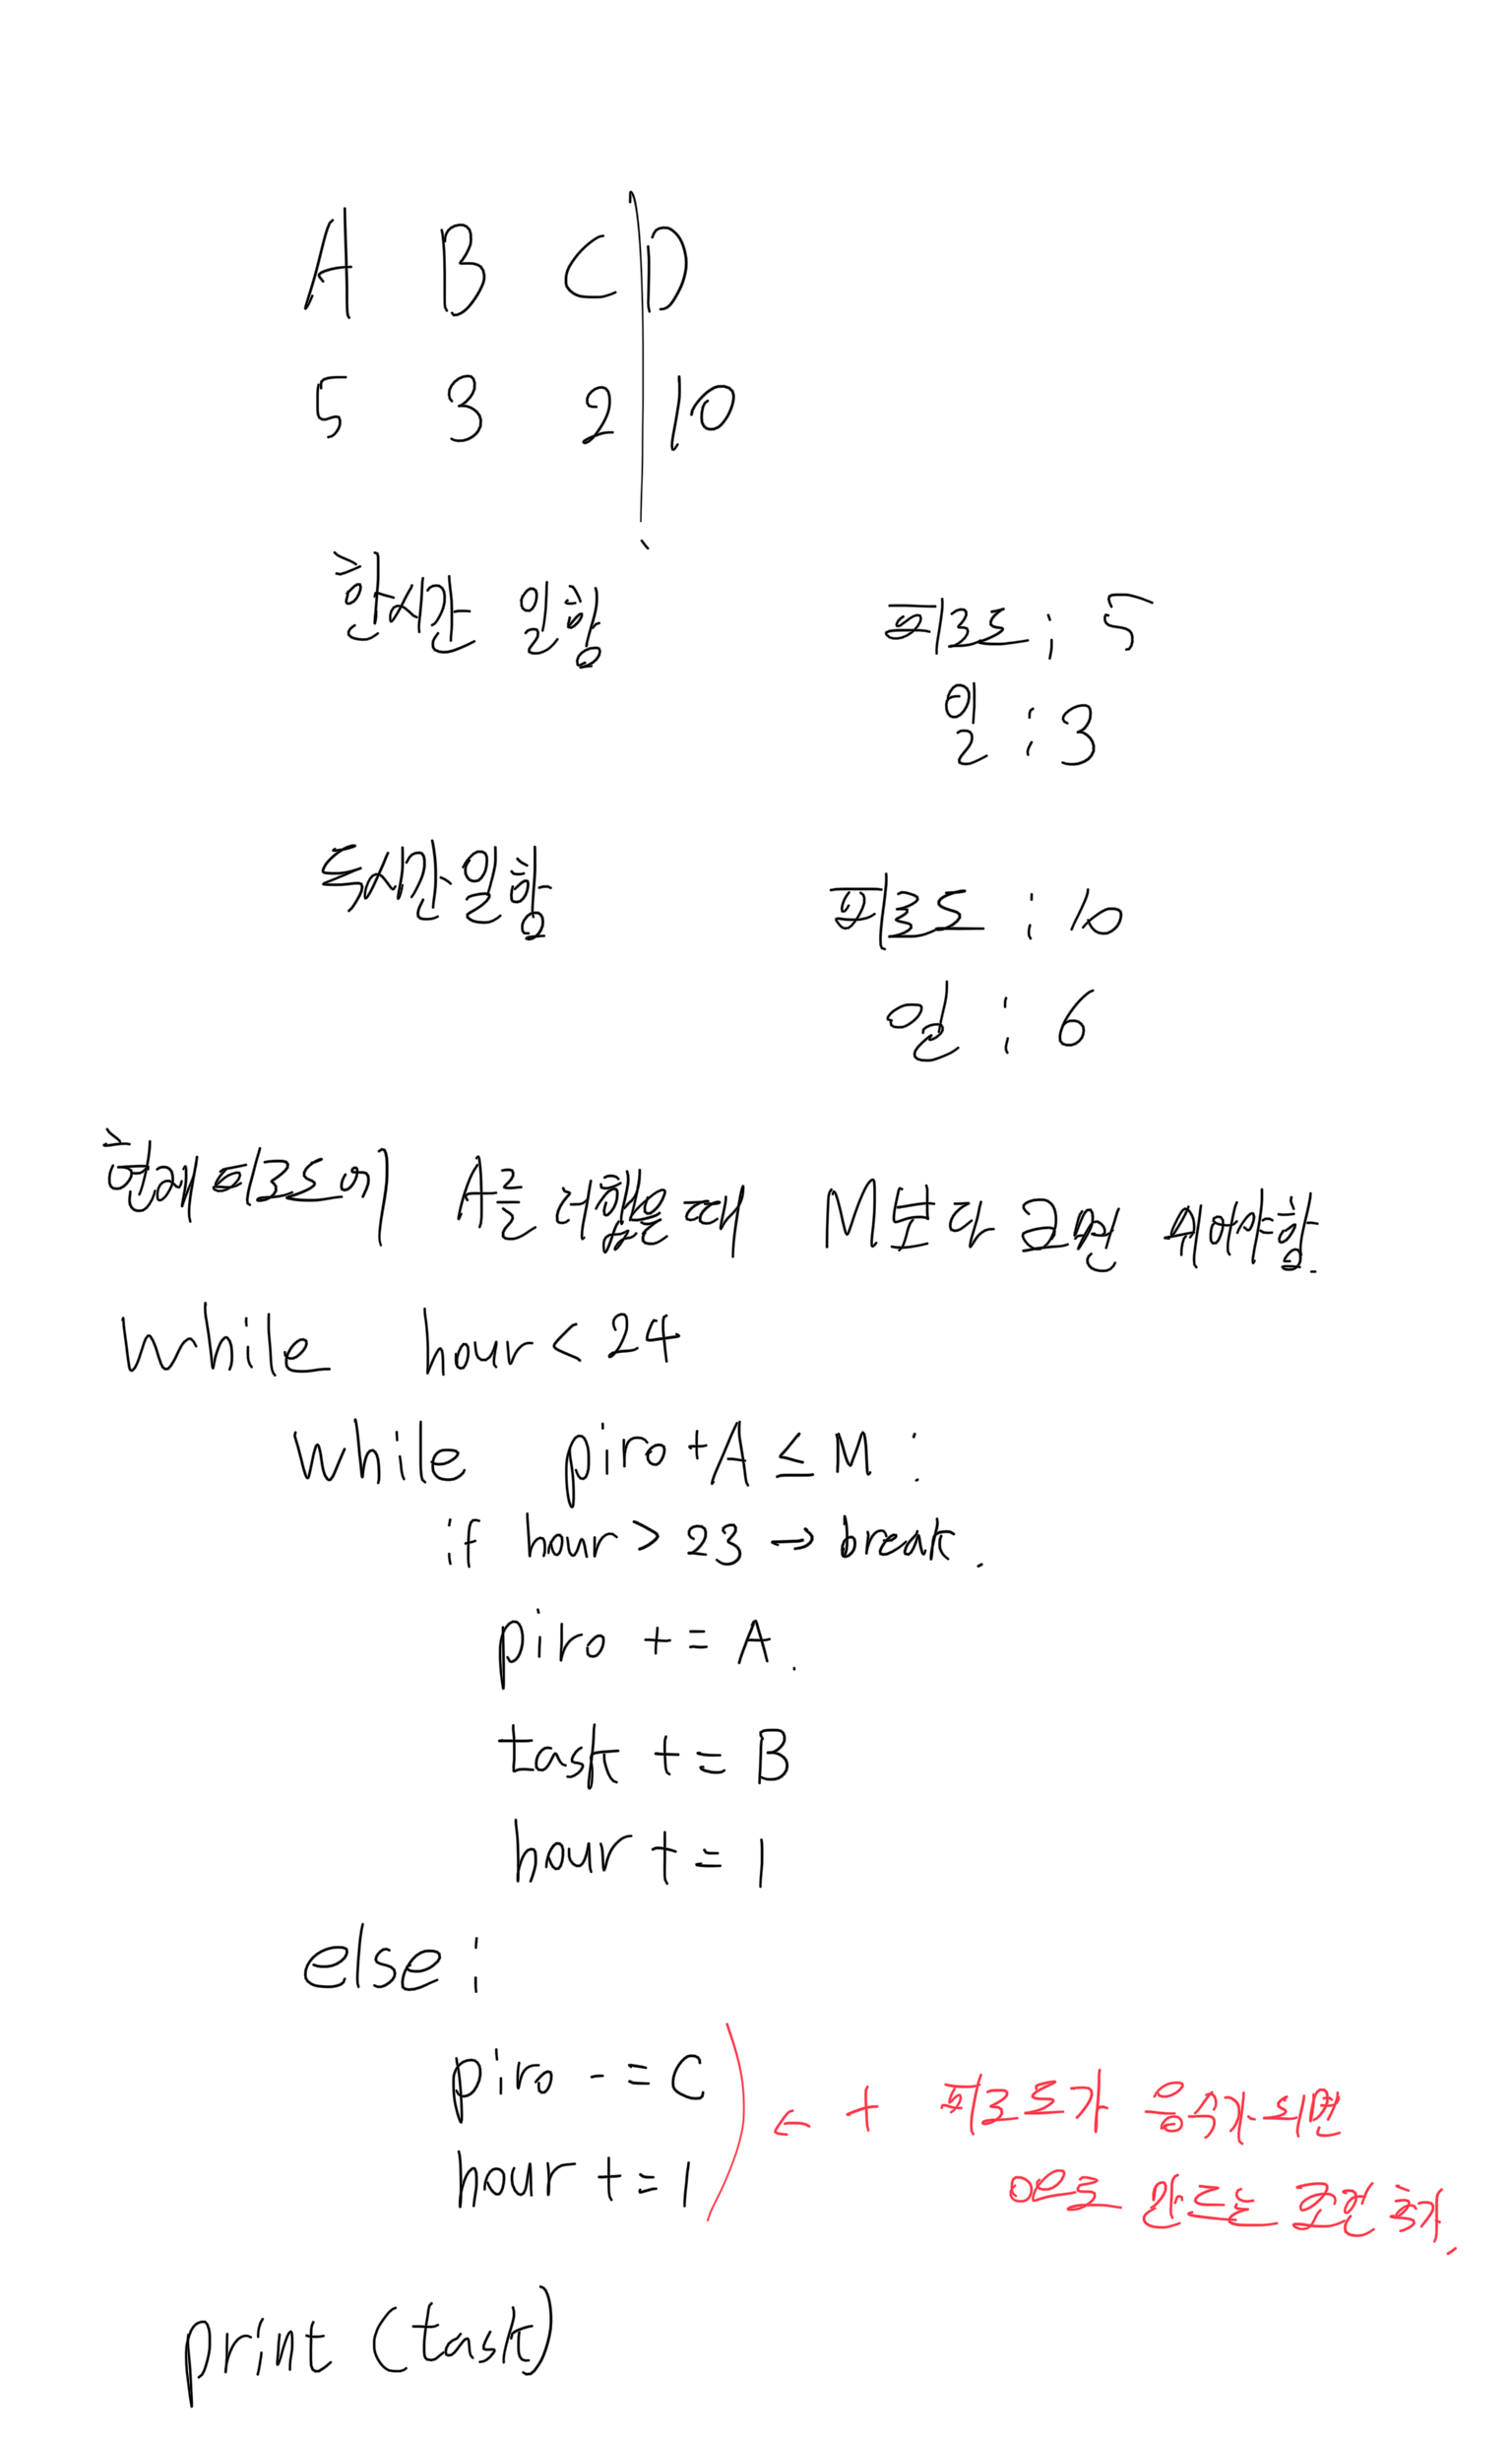 A B C D
5 3 2 10
한시간 일함
피로도: 5
일 : 3
두시간 일함
피로도 : 10
일 : 6
현재 피로도에 A를 더했을 때 M보다 크면 쉬어야함.
while hour < 24
while piro + A ≤ M :
if hour > 23 → break.
piro += A.
task += B
hour += 1
else :
piro -= C
hour += 1
← + 피로도가 음수가 되면
0으로 바꾸는 조건 추가.
print (task)